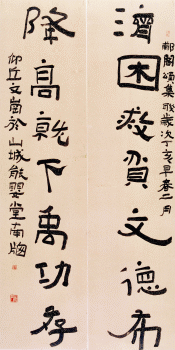 郙閣頌集聯歲次丁亥早春二月
濟困救貧文德布
降高就下禹功存
仰丘文崗於山城堂南牕